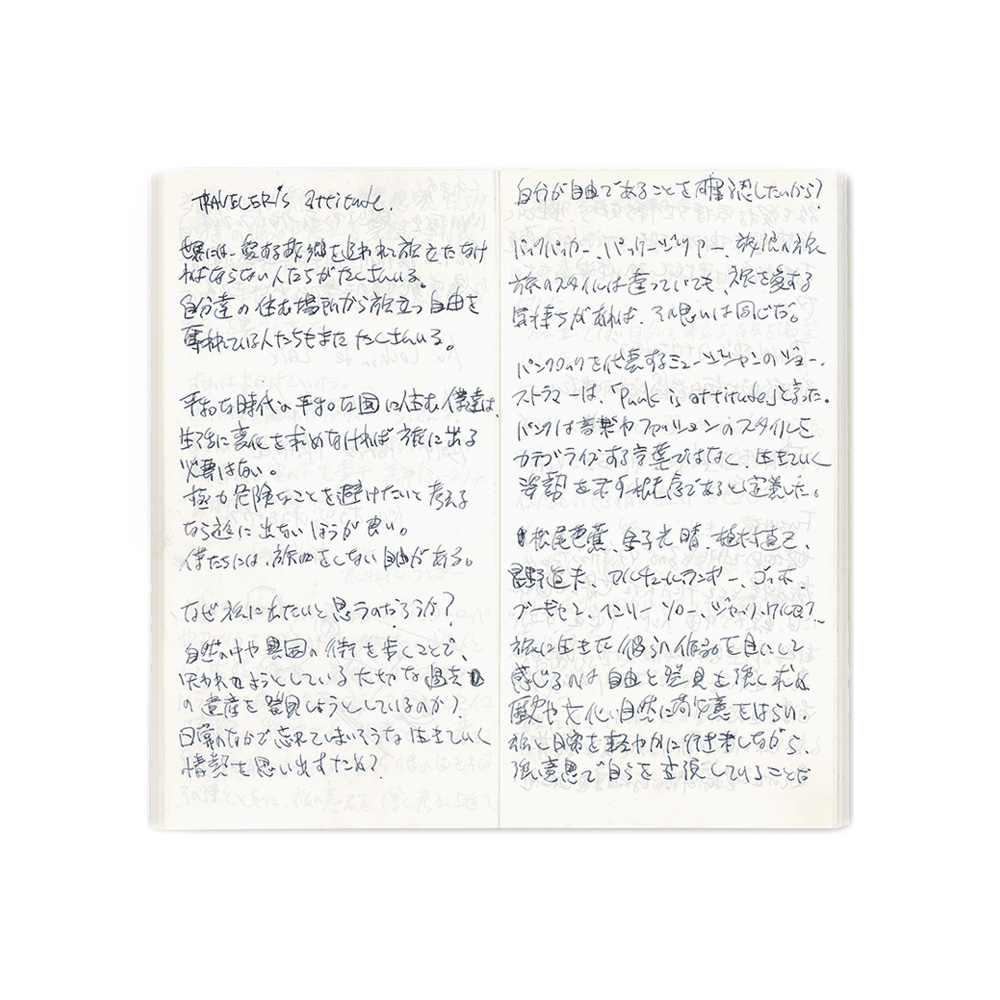 TRAVELER'S attitude.
世界には、愛する故郷を追われて旅立たなけ
ればならない人たちがたくさんいる。
自分達の住む場所から旅立つ自由を
奪われている人たちもまたたくさんいる。
平和な時代の平和な国に住む僕達は、
生活に変化を求めなければ旅に出る
必要はない。
極力危険なことを避けたいと考える
なら旅に出ないほうが良い。
僕たちには、旅をしない自由がある。
なぜ旅に出たいと思うのだろうか?
自然の中や異国の街を歩くことで、
失われようとしている大切な過去
の遺産を発見しようとしているのか?
日常のなかで忘れてしまいそうな生きていく
情熱を思い出すため?
自分が自由であることを確認したいから?
バックパッカー、パッケージツアー、放浪の旅
旅のスタイルは違っていても、旅を愛する
気持ちがあれば、その思いは同じだ。
パンクロックを代表するミュージシャンのジョー・
ストラマーは、「Punk is attitude」と言った。
パンクは音楽やファッションのスタイルを
カテゴライズする言葉ではなく、生きていく
姿勢を示す概念であると定義した。
松尾芭蕉、金子光晴、植村直己、
星野道夫、アルチュール・ランボー、ゴッホ、
ブーゼン、ヘンリー・ソロー、ジャック・ケルアック、
旅に生きた彼らの作品を目にして
感じるのは自由と発見を強く求め
歴史や文化、自然に敬意をはらい、
旅と日常を軽やかに行き来しながら、
強い意思で自らを主張していることだ